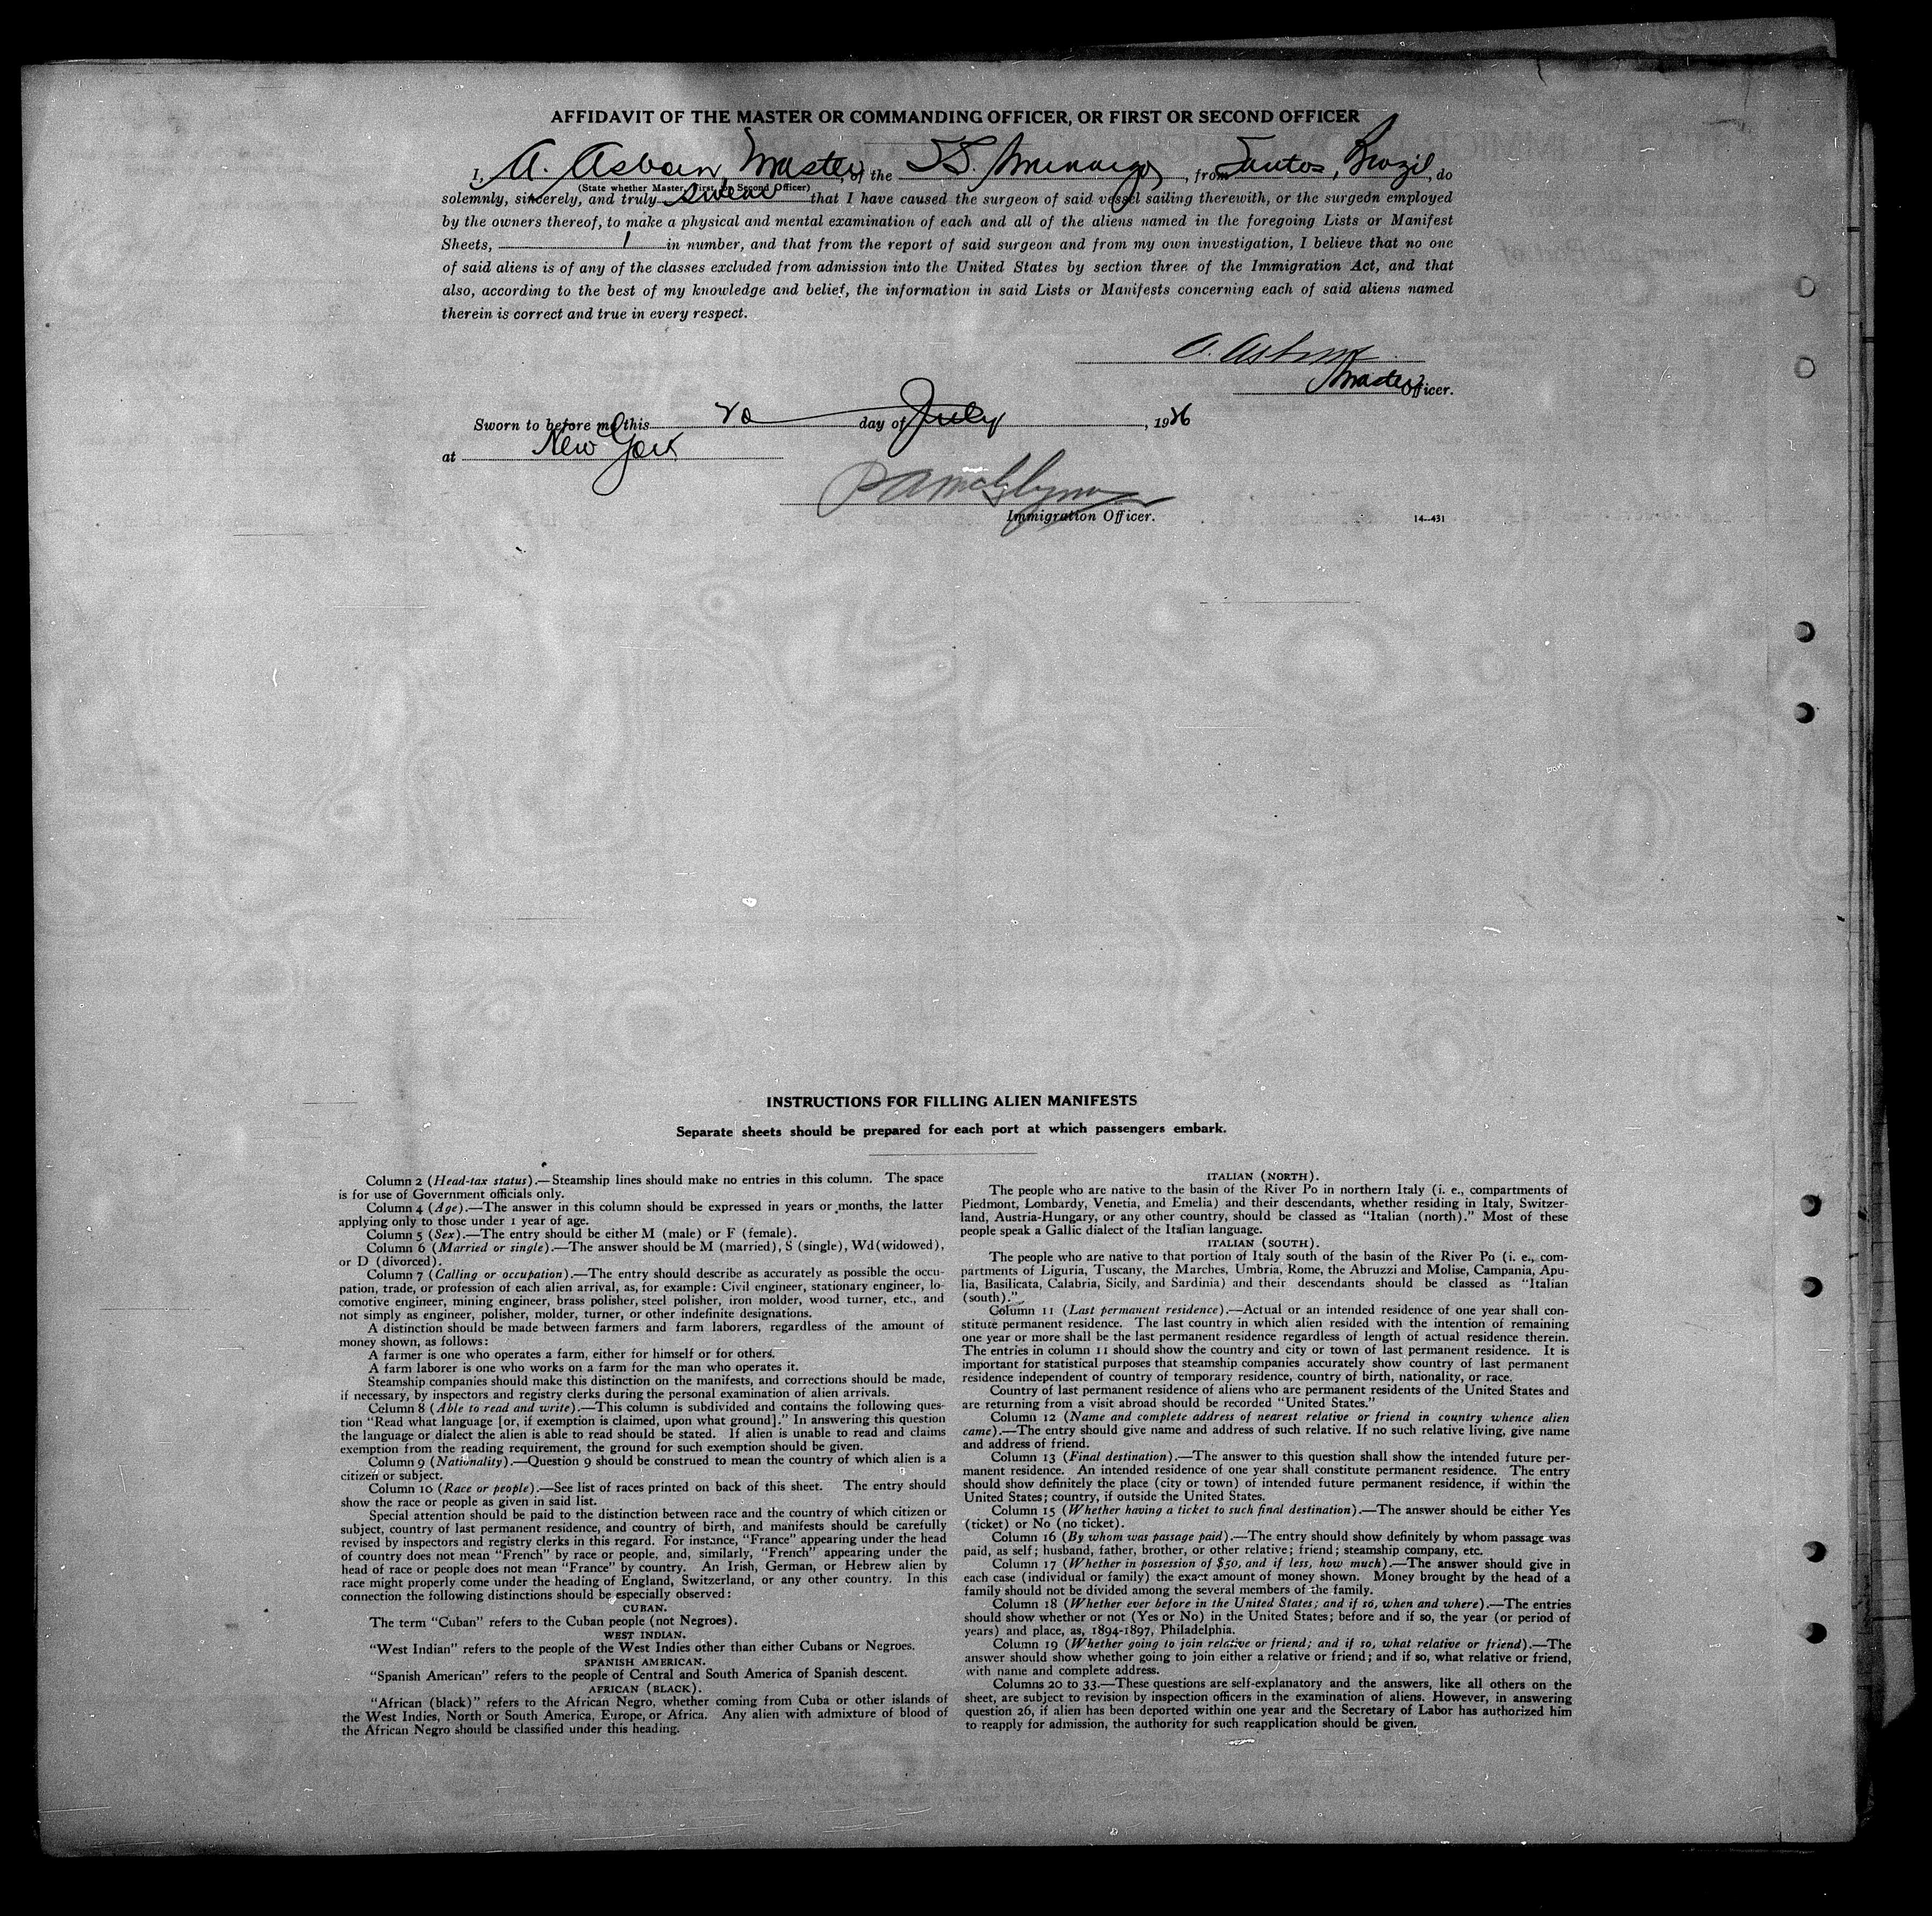 AFFIDAVIT OF THE MASTER OR COMMANDING OFFICER, OR FIRST OR SECOND OFFICER
I, A. Asborn, Master, of the SS. , from Santos, Brazil, do
(State whether Master, First, or Second Officer)
solemnly, sincerely, and truly swear that I have caused the surgeon of said vessel sailing therewith, or the surgeon employed
by the owners thereof, to make a physical and mental examination of each and all of the aliens named in the foregoing Lists or Manifest
Sheets, 1 in number, and that from the report of said surgeon and from my own investigation, I believe that no one
of said aliens is of any of the classes excluded from admission into the United States by section three of the Immigration Act, and that
also, according to the best of my knowledge and belief, the information in said Lists or Manifests concerning each of said aliens named
therein is correct and true in every respect.
A.
Master Officer.
Sworn to before me this day of July, 1926
at New York
Immigration Officer.
14—431
INSTRUCTIONS FOR FILLING ALIEN MANIFESTS
Separate sheets should be prepared for each port at which passengers embark.
Column 2 (Head-tax status).—Steamship lines should make no entries in this column. The space
is for use of Government officials only.
Column 4 (Age).—The answer in this column should be expressed in years or months, the latter
applying only to those under 1 year of age.
Column 5 (Sex).—The entry should be either M (male) or F (female).
Column 6 (Married or single).—The answer should be M (married), S (single), Wd (widowed),
or D (divorced).
Column 7 (Calling or occupation).—The entry should describe as accurately as possible the occu-
pation, trade, or profession of each alien arrival, as, for example: Civil engineer, stationary engineer, lo-
comotive engineer, mining engineer, brass polisher, steel polisher, iron molder, wood turner, etc., and
not simply as engineer, polisher, molder, turner, or other indefinite designations.
A distinction should be made between farmers and farm laborers, regardless of the amount of
money shown, as follows:
A farmer is one who operates a farm, either for himself or for others.
A farm laborer is one who works on a farm for the man who operates it.
Steamship companies should make this distinction on the manifests, and corrections should be made,
if necessary, by inspectors and registry clerks during the personal examination of alien arrivals.
Column 8 (Able to read and write).—This column is subdivided and contains the following ques-
tion "Read what language [or, if exemption is claimed, upon what ground]." In answering this question
the language or dialect the alien is able to read should be stated. If alien is unable to read and claims
exemption from the reading requirement, the ground for such exemption should be given.
Column 9 (Nationality).—Question 9 should be construed to mean the country of which alien is a
citizen or subject.
Column 10 (Race or people).—See list of races printed on back of this sheet. The entry should
show the race or people as given in said list.
Special attention should be paid to the distinction between race and the country of which citizen or
subject, country of last permanent residence, and country of birth, and manifests should be carefully
revised by inspectors and registry clerks in this regard. For instance, "France" appearing under the head
of country does not mean "French" by race or people, and, similarly, "French" appearing under the
head of race or people does not mean "France" by country. An Irish, German, or Hebrew alien by
race might properly come under the heading of England, Switzerland, or any other country. In this
connection the following distinctions should be especially observed:
CUBAN.
The term "Cuban" refers to the Cuban people (not Negroes).
WEST INDIAN.
"West Indian" refers to the people of the West Indies other than either Cubans or Negroes.
SPANISH AMERICAN.
"Spanish American" refers to the people of Central and South America of Spanish descent.
AFRICAN (BLACK).
"African (black)" refers to the African Negro, whether coming from Cuba or other islands of
the West Indies, North or South America, Europe, or Africa. Any alien with admixture of blood of
the African Negro should be classified under this heading.
ITALIAN (NORTH).
The people who are native to the basin of the River Po in northern Italy (i. e., compartments of
Piedmont, Lombardy, Venetia, and Emelia) and their descendants, whether residing in Italy, Switzer-
land, Austria-Hungary, or any other country, should be classed as "Italian (north)." Most of these
people speak a Gallic dialect of the Italian language.
ITALIAN (SOUTH).
The people who are native to that portion of Italy south of the basin of the River Po (i. e., com-
partments of Liguria, Tuscany, the Marches, Umbria, Rome, the Abruzzi and Molise, Campania, Apu-
lia, Basilicata, Calabria, Sicily, and Sardinia) and their descendants should be classed as "Italian
(south)."
Column 11 (Last permanent residence).—Actual or an intended residence of one year shall con-
stitute permanent residence. The last country in which alien resided with the intention of remaining
one year or more shall be the last permanent residence regardless of length of actual residence therein.
The entries in column 11 should show the country and city or town of last permanent residence. It is
important for statistical purposes that steamship companies accurately show country of last permanent
residence independent of country of temporary residence, country of birth, nationality, or race.
Country of last permanent residence of aliens who are permanent residents of the United States and
are returning from a visit abroad should be recorded "United States."
Column 12 (Name and complete address of nearest relative or friend in country whence alien
came).—The entry should give name and address of such relative. If no such relative living, give name
and address of friend.
Column 13 (Final destination).—The answer to this question shall show the intended future per-
manent residence. An intended residence of one year shall constitute permanent residence. The entry
should show definitely the place (city or town) of intended future permanent residence, if within the
United States; country, if outside the United States.
Column 15 (Whether having a ticket to such final destination).—The answer should be either Yes
(ticket) or No (no ticket).
Column 16 (By whom was passage paid).—The entry should show definitely by whom passage was
paid, as self; husband, father, brother, or other relative; friend; steamship company, etc.
Column 17 (Whether in possession of $50, and if less, how much).—The answer should give in
each case (individual or family) the exact amount of money shown. Money brought by the head of a
family should not be divided among the several members of the family.
Column 18 (Whether ever before in the United States; and if so, when and where).—The entries
should show whether or not (Yes or No) in the United States; before and if so, the year (or period of
years) and place, as, 1894-1897, Philadelphia.
Column 19 (Whether going to join relative or friend; and if so, what relative or friend).—The
answer should show whether going to join either a relative or friend; and if so, what relative or friend,
with name and complete address.
Columns 20 to 33.—These questions are self-explanatory and the answers, like all others on the
sheet, are subject to revision by inspection officers in the examination of aliens. However, in answering
question 26, if alien has been deported within one year and the Secretary of Labor has authorized him
to reapply for admission, the authority for such reapplication should be given.